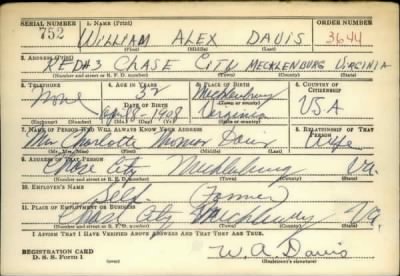 SERIAL NUMBER 1. NAME (Print) ORDER NUMBER
752 WILLIAM ALEX DAVIS 3644
(First) (Middle) (Last)
2. ADDRESS (Print)
RFD#3 CHASE CITY MECKLENBURG VIRGINIA
(Number and street or R. F. D. number) (Town) (County) (State)
3. TELEPHONE 4. AGE IN YEARS 5. PLACE OF BIRTH 6. COUNTRY OF CITIZENSHIP
None 32 Mecklenburg USA
DATE OF BIRTH (Town or county)
1908 Virginia
(Exchange) (Number) (Mo.) (Day) (Yr.) (State or country)
7. NAME OF PERSON WHO WILL ALWAYS KNOW YOUR ADDRESS 8. RELATIONSHIP OF THAT PERSON
Mrs Davis Wife
(Mr., Mrs., Miss) (First) (Middle) (Last)
9. ADDRESS OF THAT PERSON
Chase City Mecklenburg Va.
(Number and street or R. F. D. number) (Town) (County) (State)
10. EMPLOYER'S NAME
Self Farmer
11. PLACE OF EMPLOYMENT OR BUSINESS
Chase City Mecklenburg Va.
(Number and street or R. F. D. number) (Town) (County) (State)
I AFFIRM THAT I HAVE VERIFIED ABOVE ANSWERS AND THAT THEY ARE TRUE.
REGISTRATION CARD
D. S. S. Form 1 W. A. Davis
(Registrant's signature)